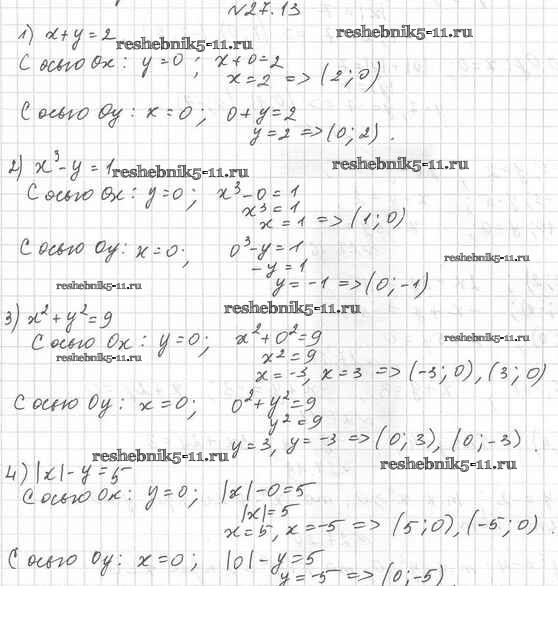 №27.13
1) x+y=2 reshebnik5-11.ru reshebnik5-11.ru
С осью Ox: y=0; x+0=2
x=2 => (2;0)
С осью Oy: x=0; 0+y=2
y=2 => (0;2).
2) x³-y=1 reshebnik5-11.ru reshebnik5-11.ru
С осью Ox: y=0; x³-0=1
x³=1
x=1 => (1;0)
С осью Oy: x=0; 0³-y=1 reshebnik5-11.ru
-y=1
reshebnik5-11.ru y=-1 => (0;-1)
3) x²+y²=9 reshebnik5-11.ru
С осью Ox: y=0; x²+0²=9 reshebnik5-11.ru
reshebnik5-11.ru x²=9
x=-3, x=3 => (-3;0), (3;0)
С осью Oy: x=0; 0²+y²=9
y²=9
y=3, y=-3 => (0;3), (0;-3).
reshebnik5-11.ru reshebnik5-11.ru
4) |x|-y=5
С осью Ox: y=0; |x|-0=5
|x|=5
x=5, x=-5 => (5;0), (-5;0).
С осью Oy: x=0; |0|-y=5
y=-5 => (0;-5).